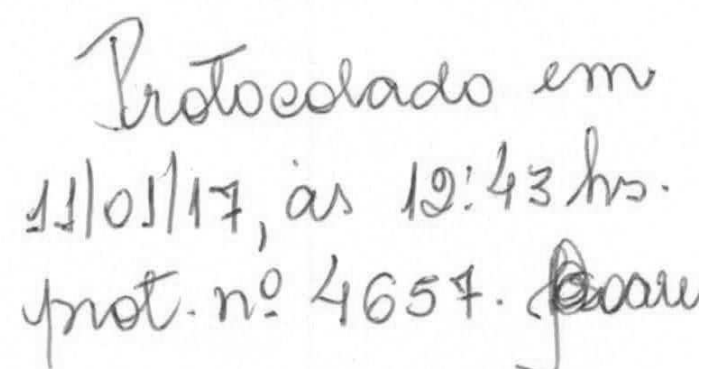 Protocolado em
11/01/17, às 12:43 hs.
prot. nº 4657.